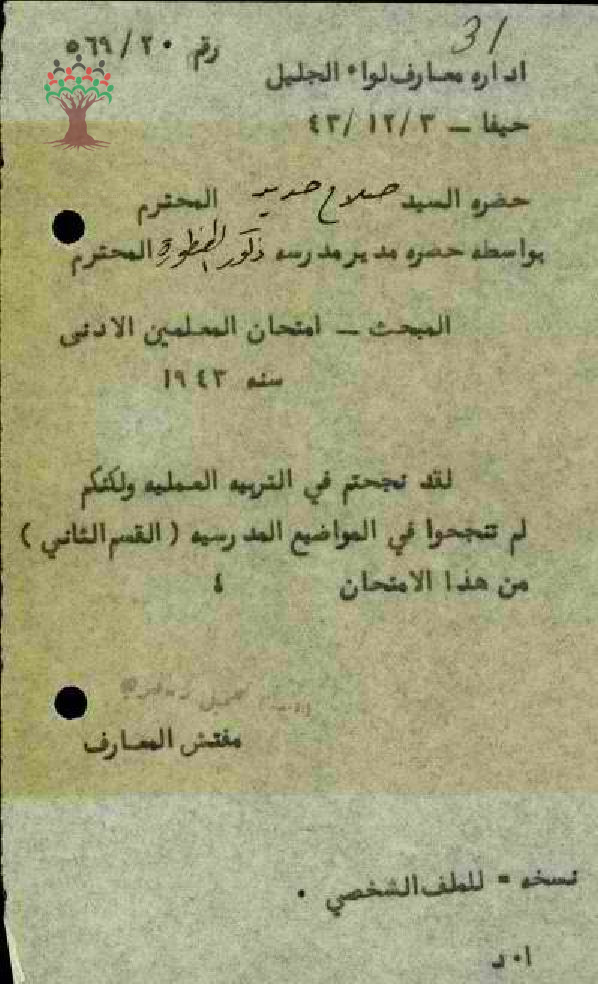 31
رقم ٥٦٩/٢٠
اداره معارف لواء الجليل
حيفا — ٤٣/١٢/٣
حضره السيد صلاح حديد المحترم
بواسطه حضره مدير مدرسه ذكور المحترم
المبحث — امتحان المعلمين الادنى
سنه ١٩٤٣
لقد نجحتم في التربيه العمليه ولكنكم
لم تنجحوا في المواضيع المدرسيه ( القسم الثاني )
من هذا الامتحان ٤
مفتش المعارف
نسخه = للملف الشخصي .
ا٠د